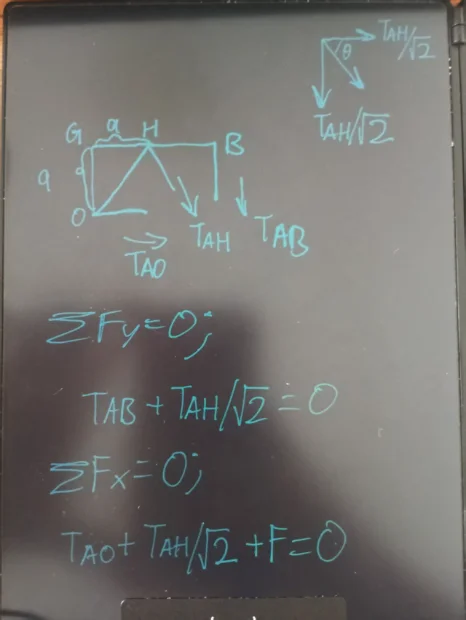 TAH/√2
θ
TAH/√2
G a H B
a
O
TAO
TAH
TAB
ΣFy=0;
TAB + TAH/√2 = 0
ΣFx=0;
TAO + TAH/√2 + F = 0